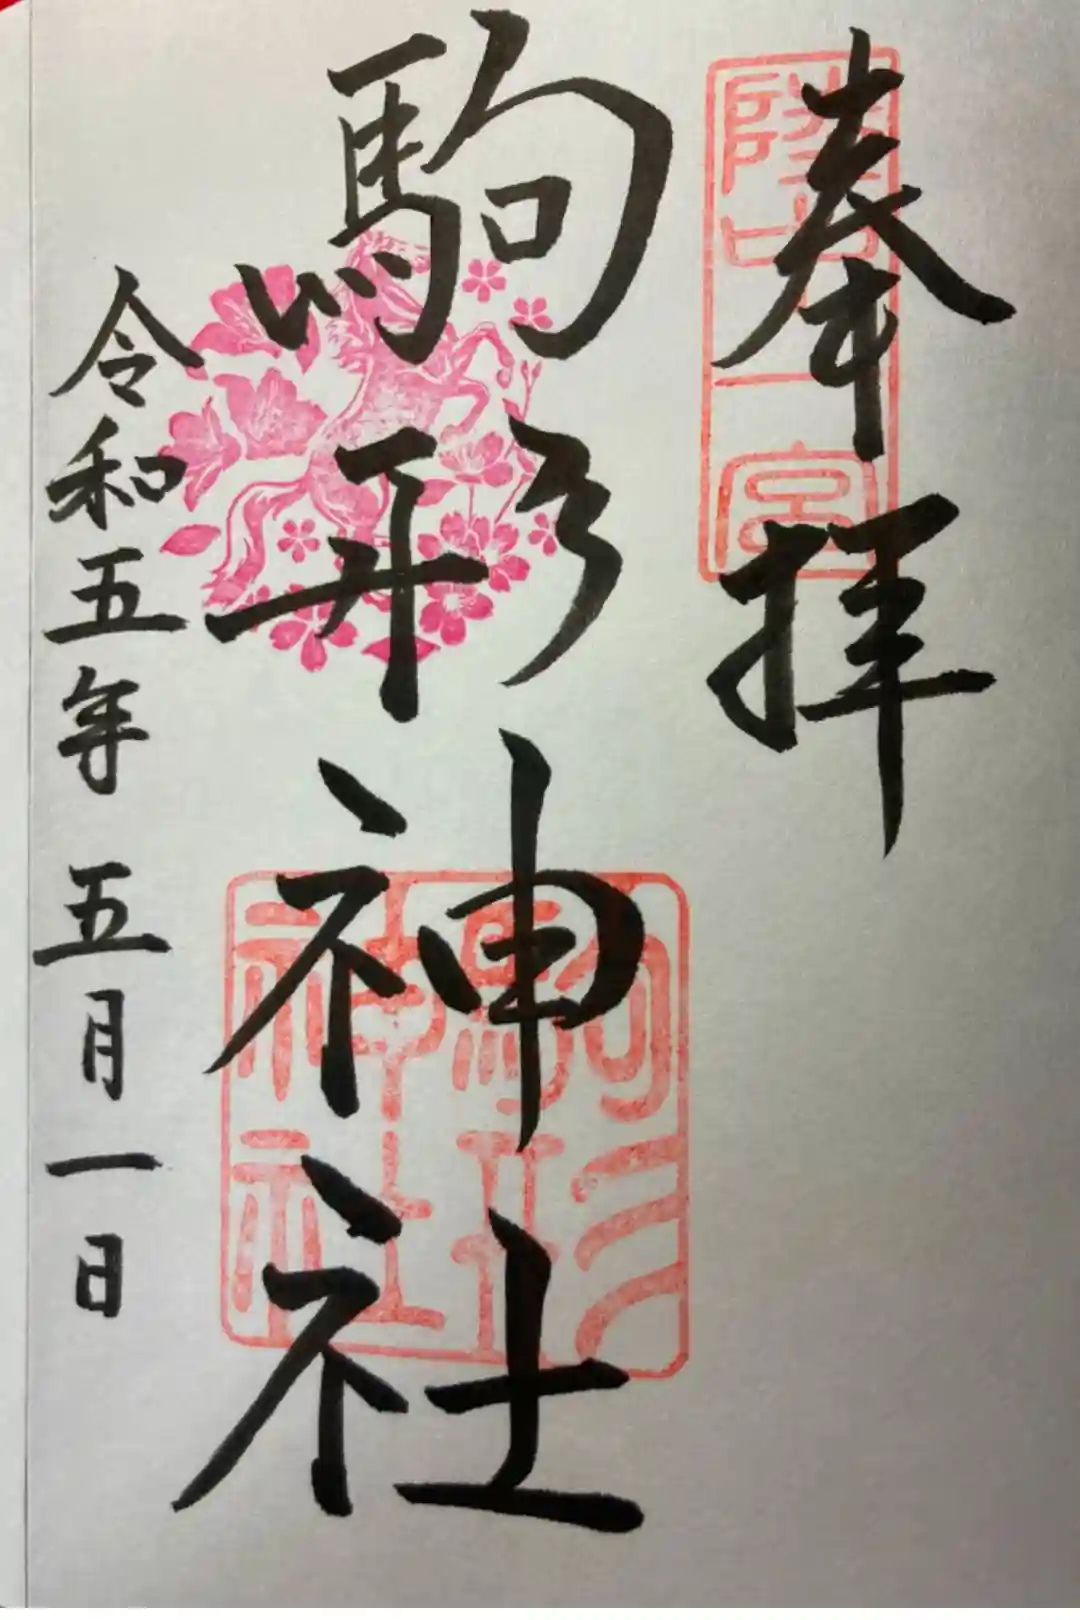 奉拝
陸中一宮
駒形神社
駒形神社
令和五年五月一日